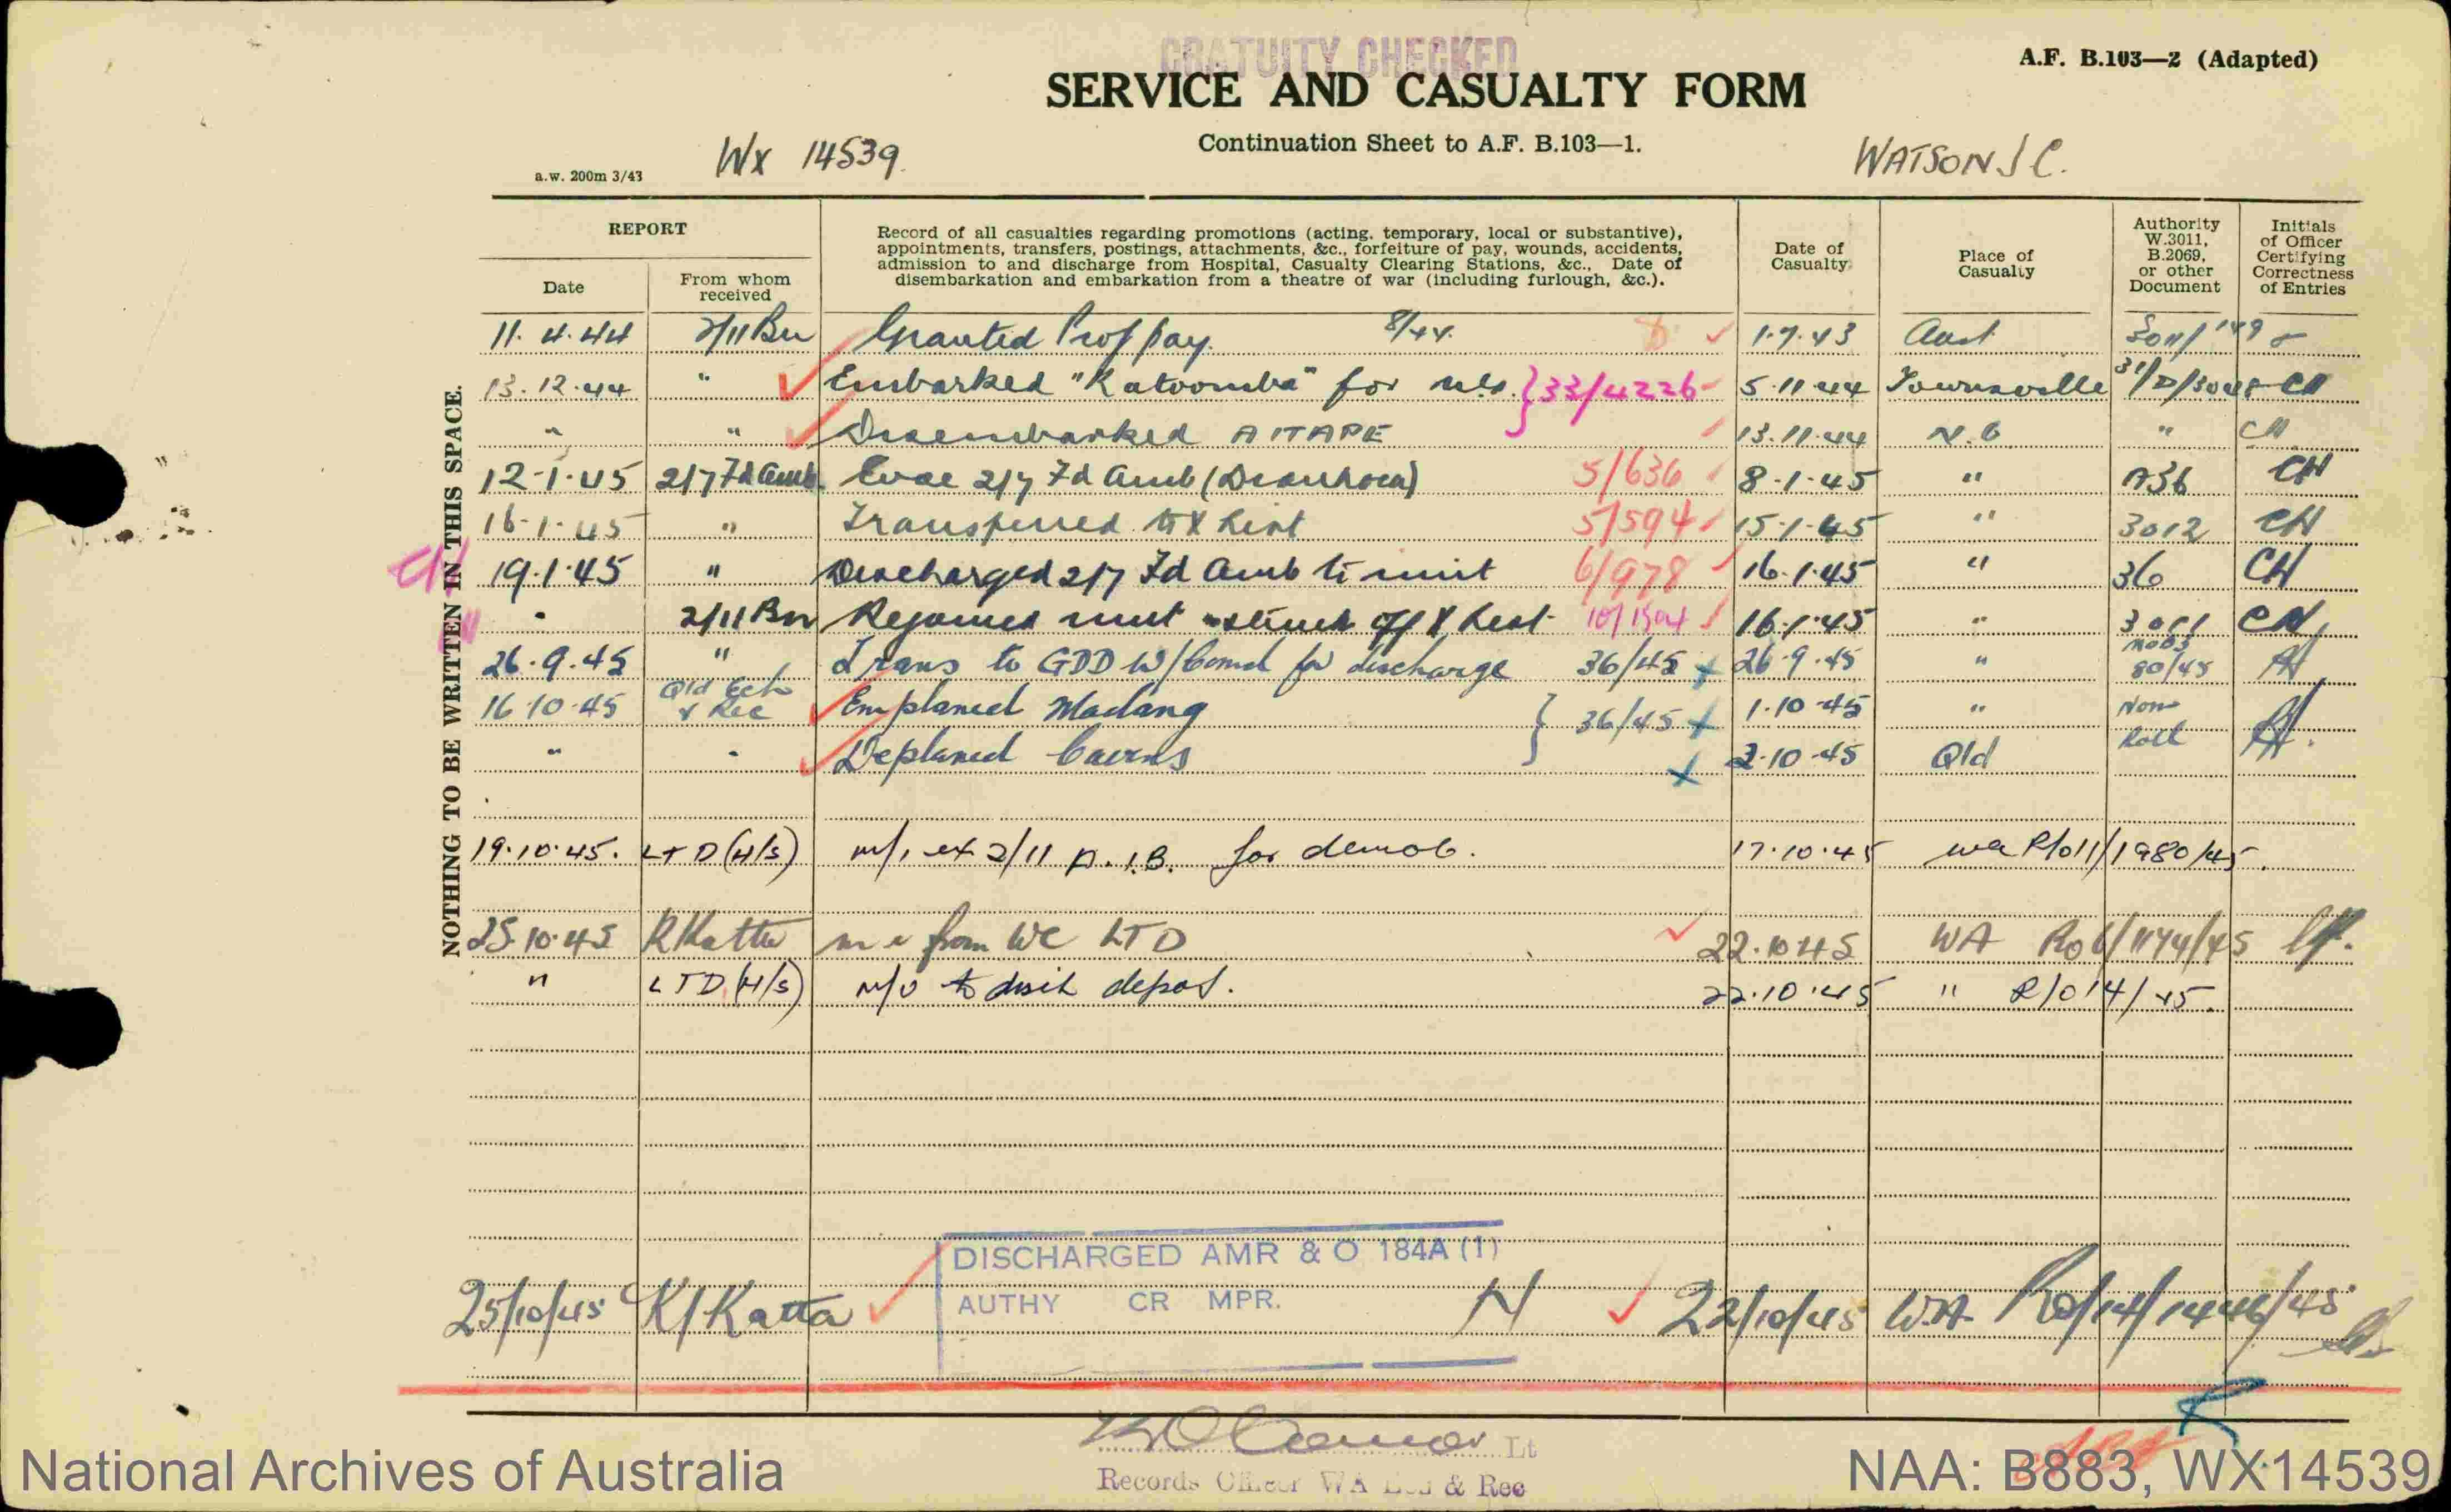 GRATUITY CHECKED
A.F. B.103—2 (Adapted)
SERVICE AND CASUALTY FORM
Continuation Sheet to A.F. B.103—1.
a.w. 200m 3/43
WX 14539.
WATSON J C.
NOTHING TO BE WRITTEN IN THIS SPACE.
REPORT
Date
From whom received
Record of all casualties regarding promotions (acting, temporary, local or substantive),
appointments, transfers, postings, attachments, &c., forfeiture of pay, wounds, accidents,
admission to and discharge from Hospital, Casualty Clearing Stations, &c., Date of
disembarkation and embarkation from a theatre of war (including furlough, &c.).
Date of Casualty
Place of Casualty
Authority W.3011, B.2069, or other Document
Initials of Officer Certifying Correctness of Entries
11.4.44 2/11 Bn Granted Prof pay. 8/44. 1.7.43 Aust 3011/149
13.12.44 " Embarked "Katoomba" for } 33/4226 5.11.44 Townsville CH
" " Disembarked AITAPE 13.11.44 N.G " CH
12.1.45 2/7 Fd Amb Evac 2/7 Fd Amb (Diarrhoea) 5/636 8.1.45 " A36 CH
16.1.45 " Transferred to X List 5/594 15.1.45 " 3012 CH
19.1.45 " Discharged 2/7 Fd Amb to unit 6/978 16.1.45 " 36 CH
" 2/11 Bn Rejoined unit struck off X List 16.1.45 " 3011 CH
26.9.45 " Trans to GDD W/bound for discharge 36/45 26.9.45 " 80/45
16.10.45 Qld Ech & Rec Emplaned Madang } 36/45 1.10.45 " Nom
" " Deplaned Cairns 2.10.45 Qld Roll
19.10.45. LTD (H/S) m/i ex 2/11 A.I.B. for demob. 17.10.45 WA R/o 11/1980/45.
25.10.45 K Katta m i from WC LTD 22.10.45 WA
" LTD (H/S) m/o to disch depot. 22.10.45 " R/O 14/45.
DISCHARGED AMR & O 184A (1)
AUTHY CR MPR.
25/10/45 K/Katta N 22/10/45 W.A. RO/14/1446/45
Lt
Records Officer WA & Rec
National Archives of Australia
NAA: B883, WX14539